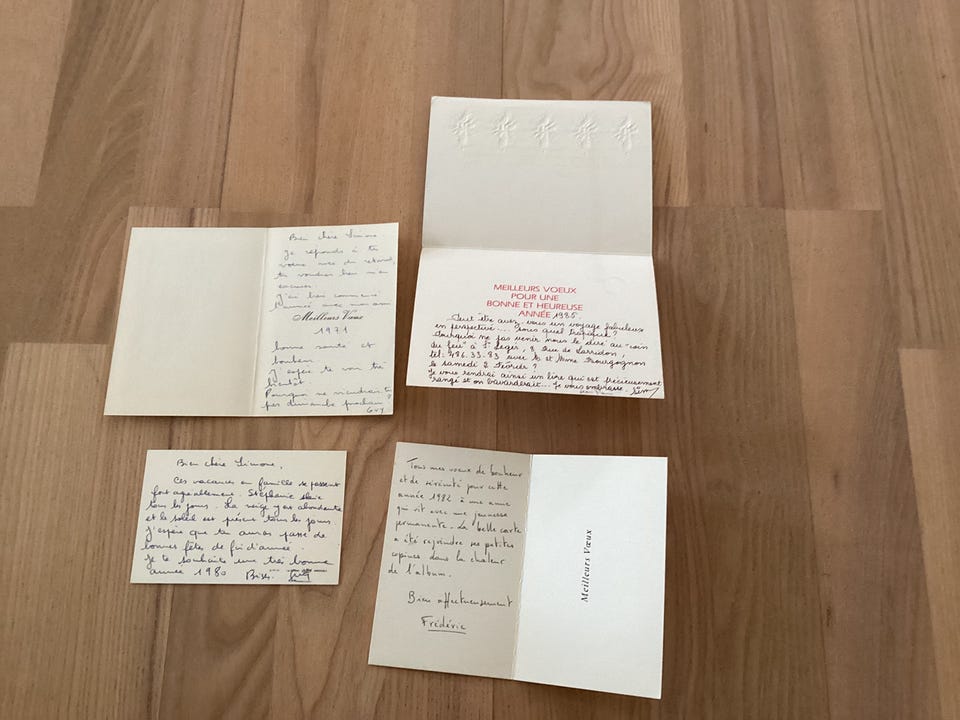 Bien chère Simone
Je réponds à tes
voeux avec du retard,
tu voudras bien m'en
excuser.
J'ai bien commencé
l'année avec mon
Meilleurs Vœux
1971
bonne santé et
bonheur.
J'espère te voir très
bientôt.
Pourquoi ne viendrais-tu
pas dimanche prochain
Guy
MEILLEURS VOEUX
POUR UNE
BONNE ET HEUREUSE
ANNÉE 1985
Peut être avez-vous un voyage fabuleux
en perspective.... sous quel tropique?
Pourquoi ne pas venir nous le dire au "coin
du feu" à St Leger, 8, Rue de Larridon,
tel: 486.33.83 avec Mr et Mme Bourgognon
le samedi 2 Février?
Je vous rendrai ainsi un livre qui est précieusement
rangé et on bavarderait... Je vous embrasse.
Bien chère Simone,
Ces vacances en famille se passent
fort agréablement. Stéphanie skie
tous les jours. La neige y est abondante
et le soleil est présent tous les jours.
J'espère que tu auras passé de
bonnes fêtes de fin d'année.
Je te souhaite une très bonne
année 1980 Bises.
Tous mes voeux de bonheur
et de sérénité pour cette
année 1982 à une amie
qui vit avec une jeunesse
permanente. La belle carte
a été rejoindre ses petites
copines dans la chaleur
de l'album.
Bien affectueusement
Frédéric
Meilleurs Vœux